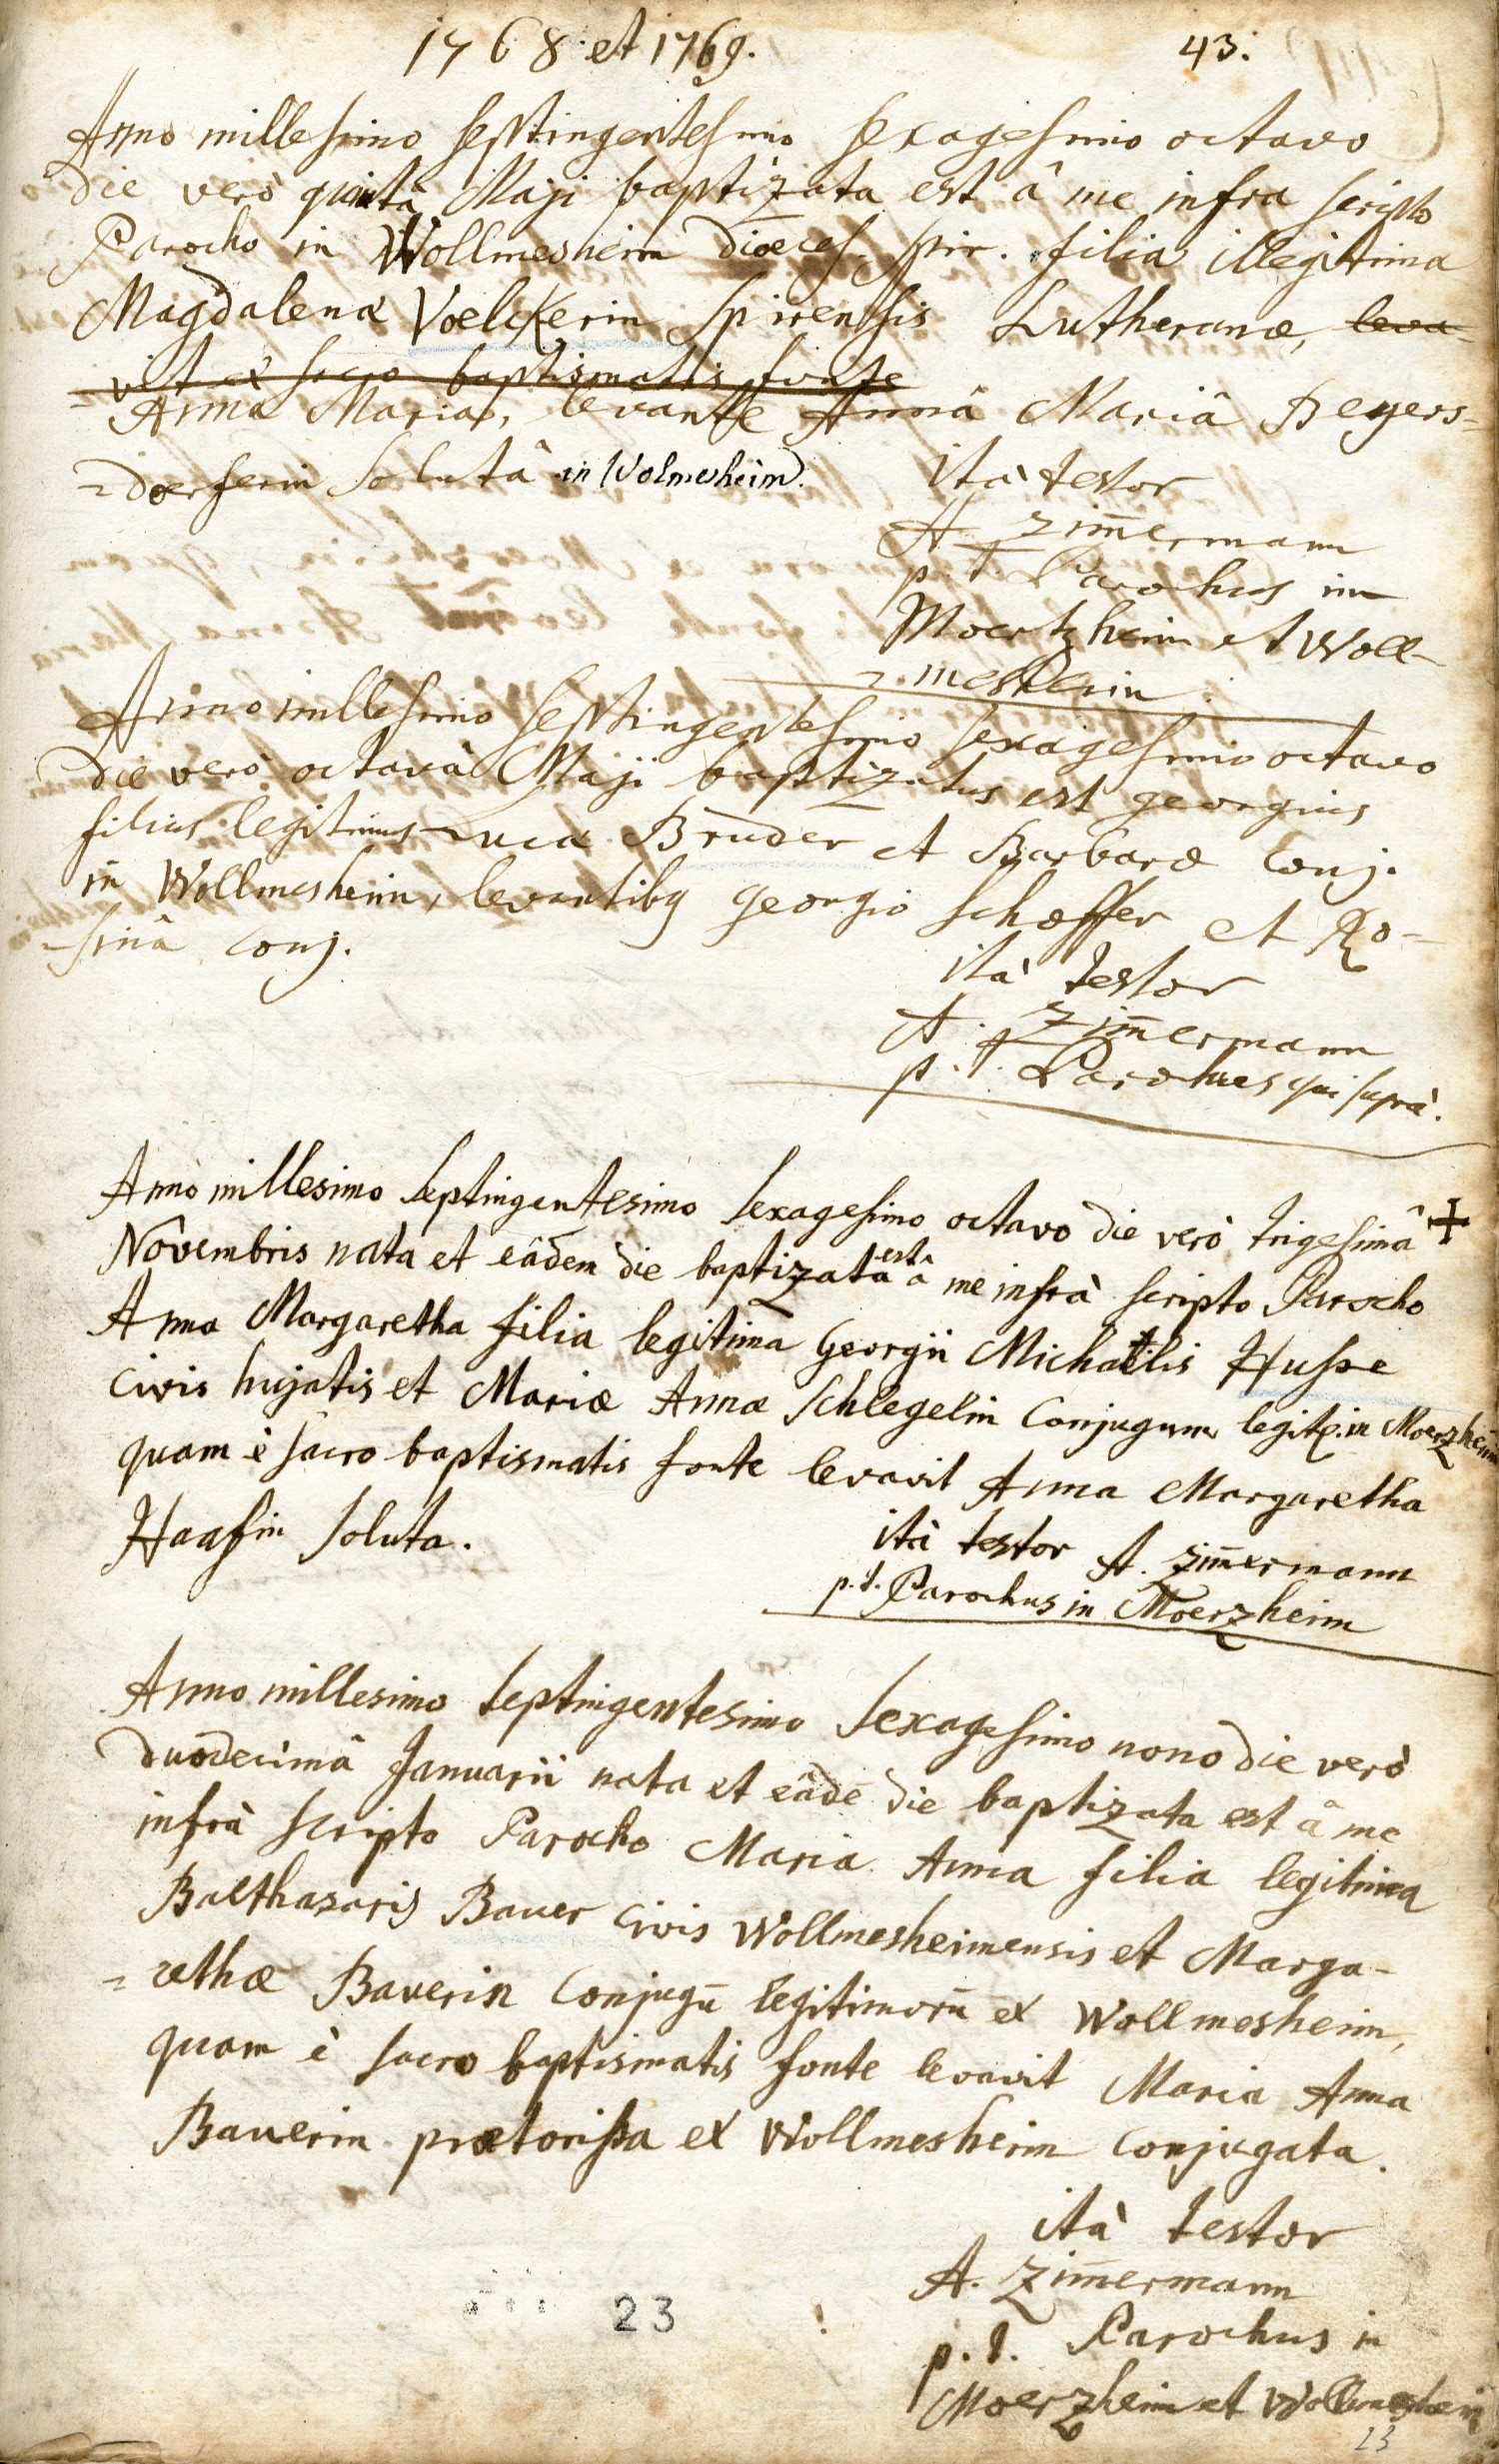 1768 et 1769. 43.
Anno millesimo septingentesimo sexagesimo octavo
die verò quintâ Maji baptizata est â me infra scripto
Parocho in Wollmesheim dioeces. spir. filia illegitima
Magdalenæ Voelckerin spirensis Lutheranæ, leva-
vit ex sacro baptismatis fonte
= Anna Maria, levante Annâ Mariâ Beyers=
=doerferin solutâ in Wolmesheim.
ità testor
A. Zim̄ermann
p. t. Parochus in
Moertzheim et Woll-
=mesheim
Anno millesimo septingentesimo sexagesimo octavo
die verò octavâ Maji baptizatus est georgius
filius legitimus Luca Bruder et Barbaræ conj.
in Wollmesheim, levantibq georgio schæffer et Ro=
-sinâ conj.
ità testor
A. Zim̄ermann
p. t. Parochus qui suprà.
Anno millesimo septingentesimo sexagesimo octavo die verò trigesimâ +
Novembris nata et eâdem die baptizata est â me infrà scripto Parocho
Anna Margaretha filia legitima Georgii Michaëlis Husse
civis hujatis et Mariæ Annæ Schlegelin Conjugum legit. in Moerzheim
quam è sacro baptismatis fonte levavit Anna Margaretha
Haasin soluta.
ità testor A. Zim̄ermann
p. t. Parochus in Moerzheim
Anno millesimo septingentesimo sexagesimo nono die verò
duodecimâ Januarii nata et eâdē die baptizata est â me
infrà scripto Parocho Maria Anna filia legitima
Balthasaris Bauer civis Wollmesheimensis et Marga-
=rethæ Bauerin Conjugū legitimorū ex Wollmesheim,
quam è sacro baptismatis fonte levavit Maria Anna
Bauerin prætorissa ex Wollmesheim conjugata.
ità testor
A. Zim̄ermann
p. t. Parochus in
Moerzheim et Wollmesheim
23
23